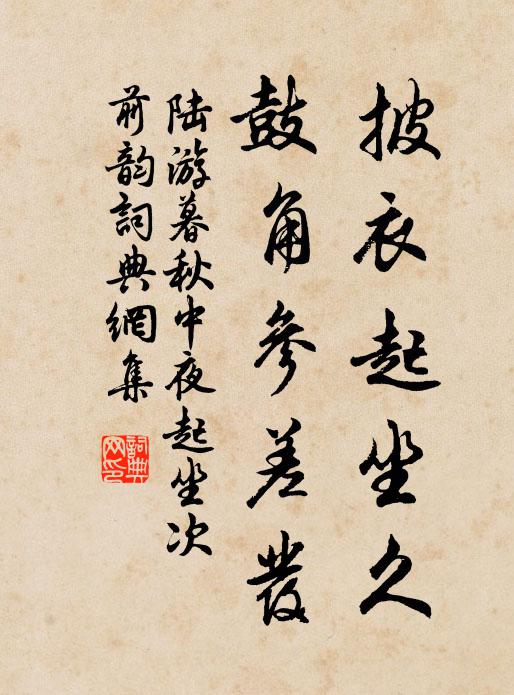 披衣起坐久
鼓角參差發
陆游暮秋中夜起坐次
前韵詞典網集
詞典网印